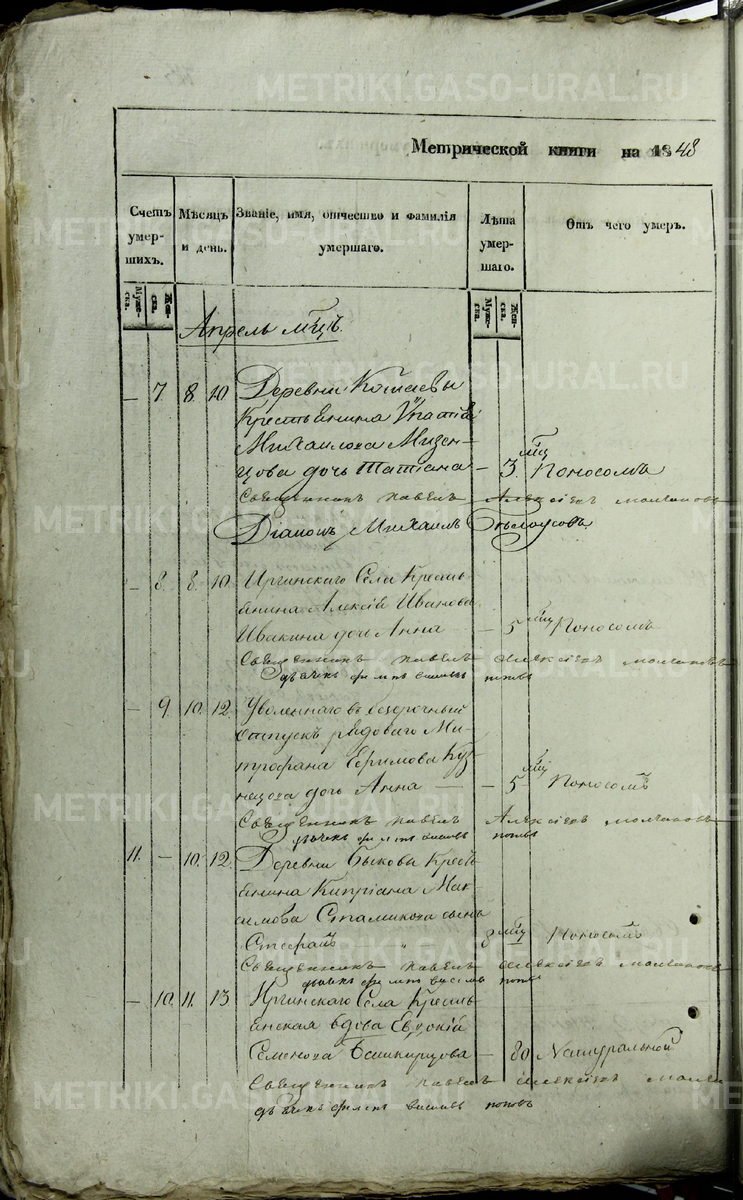 METRIKI.GASO-URAL.RU
Метрической книги на 1848
Счетъ умер- шихъ.
Мѣсяцъ и день.
Званіе, имя, отчество и фамилія умершаго.
Лѣта умер- шаго.
Отъ чего умеръ.
Муже- ска.
Жен- ска.
Муже- ска.
Жен- ска.
Апрель мѣцъ
– 7. 8. 10 Деревни
Крестьянина Игнатія
Михайлова Мизен-
цова дочь Татіана – 3. мѣц Поносомъ
Священникъ Павелъ Алексіевъ Молчановъ
Діаконъ Михаилъ Бѣлоусовъ
– 8. 8. 10 Иргинскаго Села Кресть
янина Алексія Иванова
Ивакина дочь Анна – 5 мѣц Поносомъ
Священникъ Павелъ Алексіевъ Молчановъ
дьячекъ поповъ
– 9. 10. 12. Уволеннаго въ безсрочный
отпускъ рядоваго Ми-
трофана Ефимова Куз-
нецова дочь Анна – – 5 мѣц Поносомъ
Священникъ Павелъ Алексіевъ Молчановъ
дьячекъ поповъ
11. – 10. 12. Деревни Быковой Кресть
янина Кипріана Мак-
симова сынъ
Стефанъ " 8 мѣц Поносомъ
Священникъ Павелъ Алексіевъ Молчановъ
дьячекъ поповъ
– 10. 11. 13 Иргинскаго Села Кресть
янская вдова Евдокія
Семенова Башкирцова – 80 Натуральной
Священникъ Павелъ Алексіевъ
дьячекъ поповъ